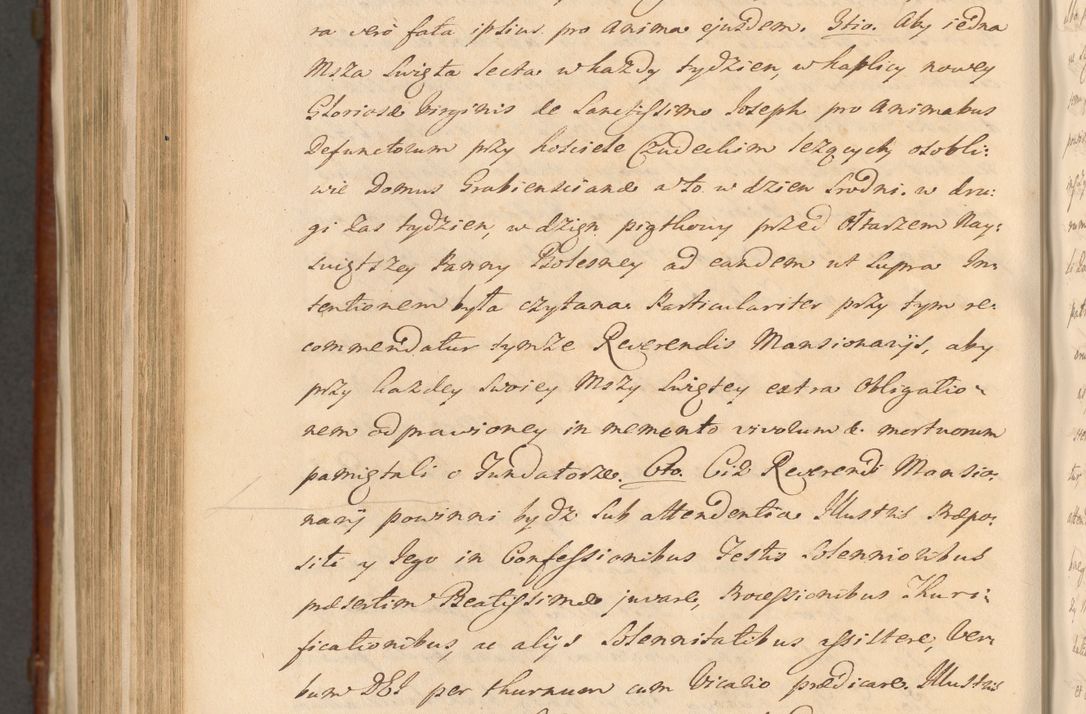 ra verò fata ipsius pro Anima ejusdem. 3tio. Aby iedna
Msza Swięta lecta w każdy tydzien, w kaplicy nowey
Gloriosæ Virginis de Sanctissimo Joseph pro Animabus
Defunctorum przy kościele Czudeckim leżących osobli:
wie Domus Grabienscianæ a to w dzien Srodni. w dru:
gi zas tydzien, w dzięn piątkowy przed Ołtarzem Nay:
swiętszey Panny Bolesney ad eandem ut supra In:
tentionem była czytana. Particulariter przy tym re:
commendatur tymże Reverendis Mansionarijs, aby
przy każdey swoiey Mszy Swiętey extra Obligatio:
nem odprawioney in memento vivorum & mortuorum
pamiętali o Fundatorze. 4to. Ciż Reverendi Mansio:
narij powinni bydz sub attendentia Illustris Præpo:
siti y Jego in Confessionibus Festis Solennioribus
præsertim Beatissimæ juvare, Processionibus Thuri:
ficationibus, ac alijs Solennitatibus assistere, Ver:
bum DEI per thurnum cum Vicario prædicare. Illustris